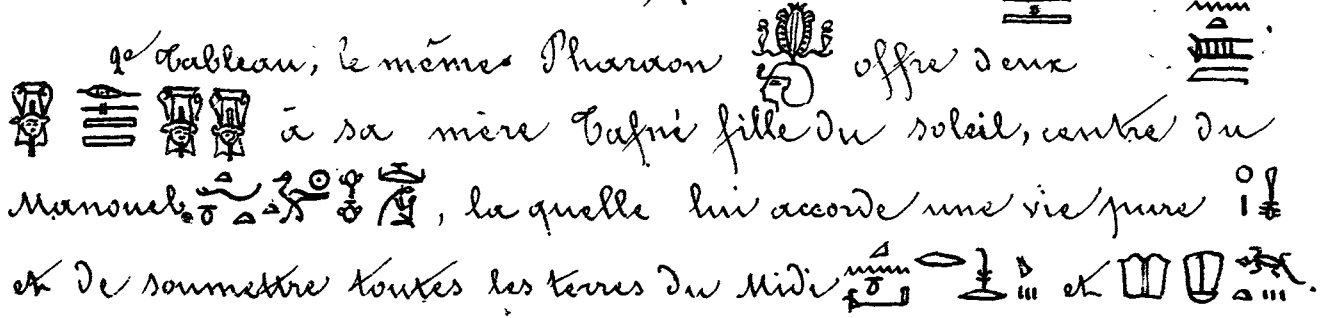 9e Tableau, le même Pharaon offre deux
à sa mère Tafné fille du soleil, centre du
Manoueb, la quelle lui accorde une vie pure
et de soumettre toutes les terres du Midi et